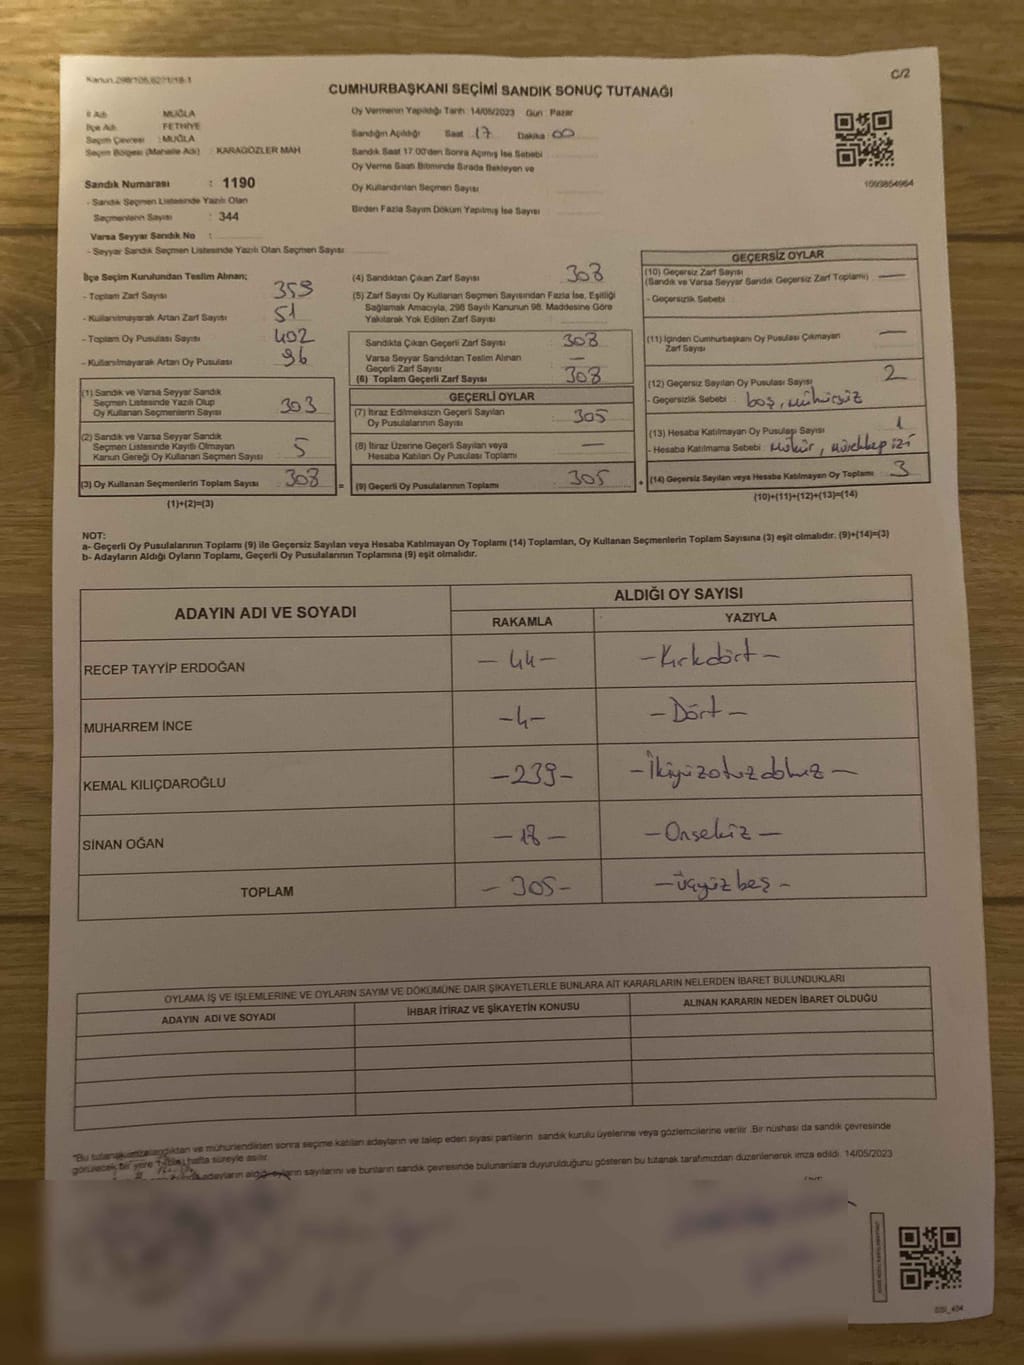 Kanun.298/105,6271/18-1
C/2
CUMHURBAŞKANI SEÇİMİ SANDIK SONUÇ TUTANAĞI
İl Adı : MUĞLA
İlçe Adı : FETHİYE
Seçim Çevresi : MUĞLA
Seçim Bölgesi (Mahalle Adı) : KARAGÖZLER MAH
Oy Vermenin Yapıldığı Tarih : 14/05/2023 Gün : Pazar
Sandığın Açıldığı Saat : 17 Dakika : 00
Sandık Saat 17:00'den Sonra Açılmış İse Sebebi :
Oy Verme Saati Bitiminde Sırada Bekleyen ve
Oy Kullandırılan Seçmen Sayısı :
Birden Fazla Sayım Döküm Yapılmış İse Sayısı :
1099864964
Sandık Numarası : 1190
- Sandık Seçmen Listesinde Yazılı Olan
Seçmenlerin Sayısı : 344
Varsa Seyyar Sandık No :
- Seyyar Sandık Seçmen Listesinde Yazılı Olan Seçmen Sayısı :
İlçe Seçim Kurulundan Teslim Alınan;
- Toplam Zarf Sayısı : 359
- Kullanılmayarak Artan Zarf Sayısı : 51
- Toplam Oy Pusulası Sayısı : 402
- Kullanılmayarak Artan Oy Pusulası : 96
(1) Sandık ve Varsa Seyyar Sandık
Seçmen Listesinde Yazılı Olup
Oy Kullanan Seçmenlerin Sayısı : 303
(2) Sandık ve Varsa Seyyar Sandık
Seçmen Listesinde Kayıtlı Olmayan
Kanun Gereği Oy Kullanan Seçmen Sayısı : 5
(3) Oy Kullanan Seçmenlerin Toplam Sayısı : 308
(1)+(2)=(3)
(4) Sandıktan Çıkan Zarf Sayısı : 308
(5) Zarf Sayısı Oy Kullanan Seçmen Sayısından Fazla İse, Eşitliği
Sağlamak Amacıyla, 298 Sayılı Kanunun 98. Maddesine Göre
Yakılarak Yok Edilen Zarf Sayısı :
Sandıkta Çıkan Geçerli Zarf Sayısı : 308
Varsa Seyyar Sandıktan Teslim Alınan
Geçerli Zarf Sayısı : —
(6) Toplam Geçerli Zarf Sayısı : 308
GEÇERLİ OYLAR
(7) İtiraz Edilmeksizin Geçerli Sayılan
Oy Pusulalarının Sayısı : 305
(8) İtiraz Üzerine Geçerli Sayılan veya
Hesaba Katılan Oy Pusulası Toplamı : —
= (9) Geçerli Oy Pusulalarının Toplamı : 305
GEÇERSİZ OYLAR
(10) Geçersiz Zarf Sayısı : —
(Sandık ve Varsa Seyyar Sandık Geçersiz Zarf Toplamı)
- Geçersizlik Sebebi :
(11) İçinden Cumhurbaşkanı Oy Pusulası Çıkmayan
Zarf Sayısı : —
(12) Geçersiz Sayılan Oy Pusulası Sayısı : 2
- Geçersizlik Sebebi : boş, mühürsüz
(13) Hesaba Katılmayan Oy Pusulası Sayısı : 1
- Hesaba Katılmama Sebebi : Mühür, mürekkep izi
+ (14) Geçersiz Sayılan veya Hesaba Katılmayan Oy Toplamı : 3
(10)+(11)+(12)+(13)=(14)
NOT:
a- Geçerli Oy Pusulalarının Toplamı (9) ile Geçersiz Sayılan veya Hesaba Katılmayan Oy Toplamı (14) Toplamları, Oy Kullanan Seçmenlerin Toplam Sayısına (3) eşit olmalıdır. (9)+(14)=(3)
b- Adayların Aldığı Oyların Toplamı, Geçerli Oy Pusulalarının Toplamına (9) eşit olmalıdır.
ADAYIN ADI VE SOYADI
ALDIĞI OY SAYISI
RAKAMLA YAZIYLA
RECEP TAYYİP ERDOĞAN – 44 – – Kırkdört –
MUHARREM İNCE – 4 – – Dört –
KEMAL KILIÇDAROĞLU – 239 – – İkiyüzotuzdokuz –
SİNAN OĞAN – 18 – – Onsekiz –
TOPLAM – 305 – – Üçyüzbeş –
OYLAMA İŞ VE İŞLEMLERİNE VE OYLARIN SAYIM VE DÖKÜMÜNE DAİR ŞİKAYETLERLE BUNLARA AİT KARARLARIN NELERDEN İBARET BULUNDUKLARI
ADAYIN ADI VE SOYADI İHBAR İTİRAZ VE ŞİKAYETİN KONUSU ALINAN KARARIN NEDEN İBARET OLDUĞU
"Bu tutanak imzalandıktan ve mühürlendikten sonra seçime katılan adayların ve talep eden siyasi partilerin sandık kurulu üyelerine veya gözlemcilerine verilir. Bir nüshası da sandık çevresinde
görülecek bir yere 1 (bir) hafta süreyle asılır.
adayların aldığı oyların sayılarını ve bunların sandık çevresinde bulunanlara duyurulduğunu gösteren bu tutanak tarafımızdan düzenlenerek imza edildi. 14/05/2023
SSİ_404